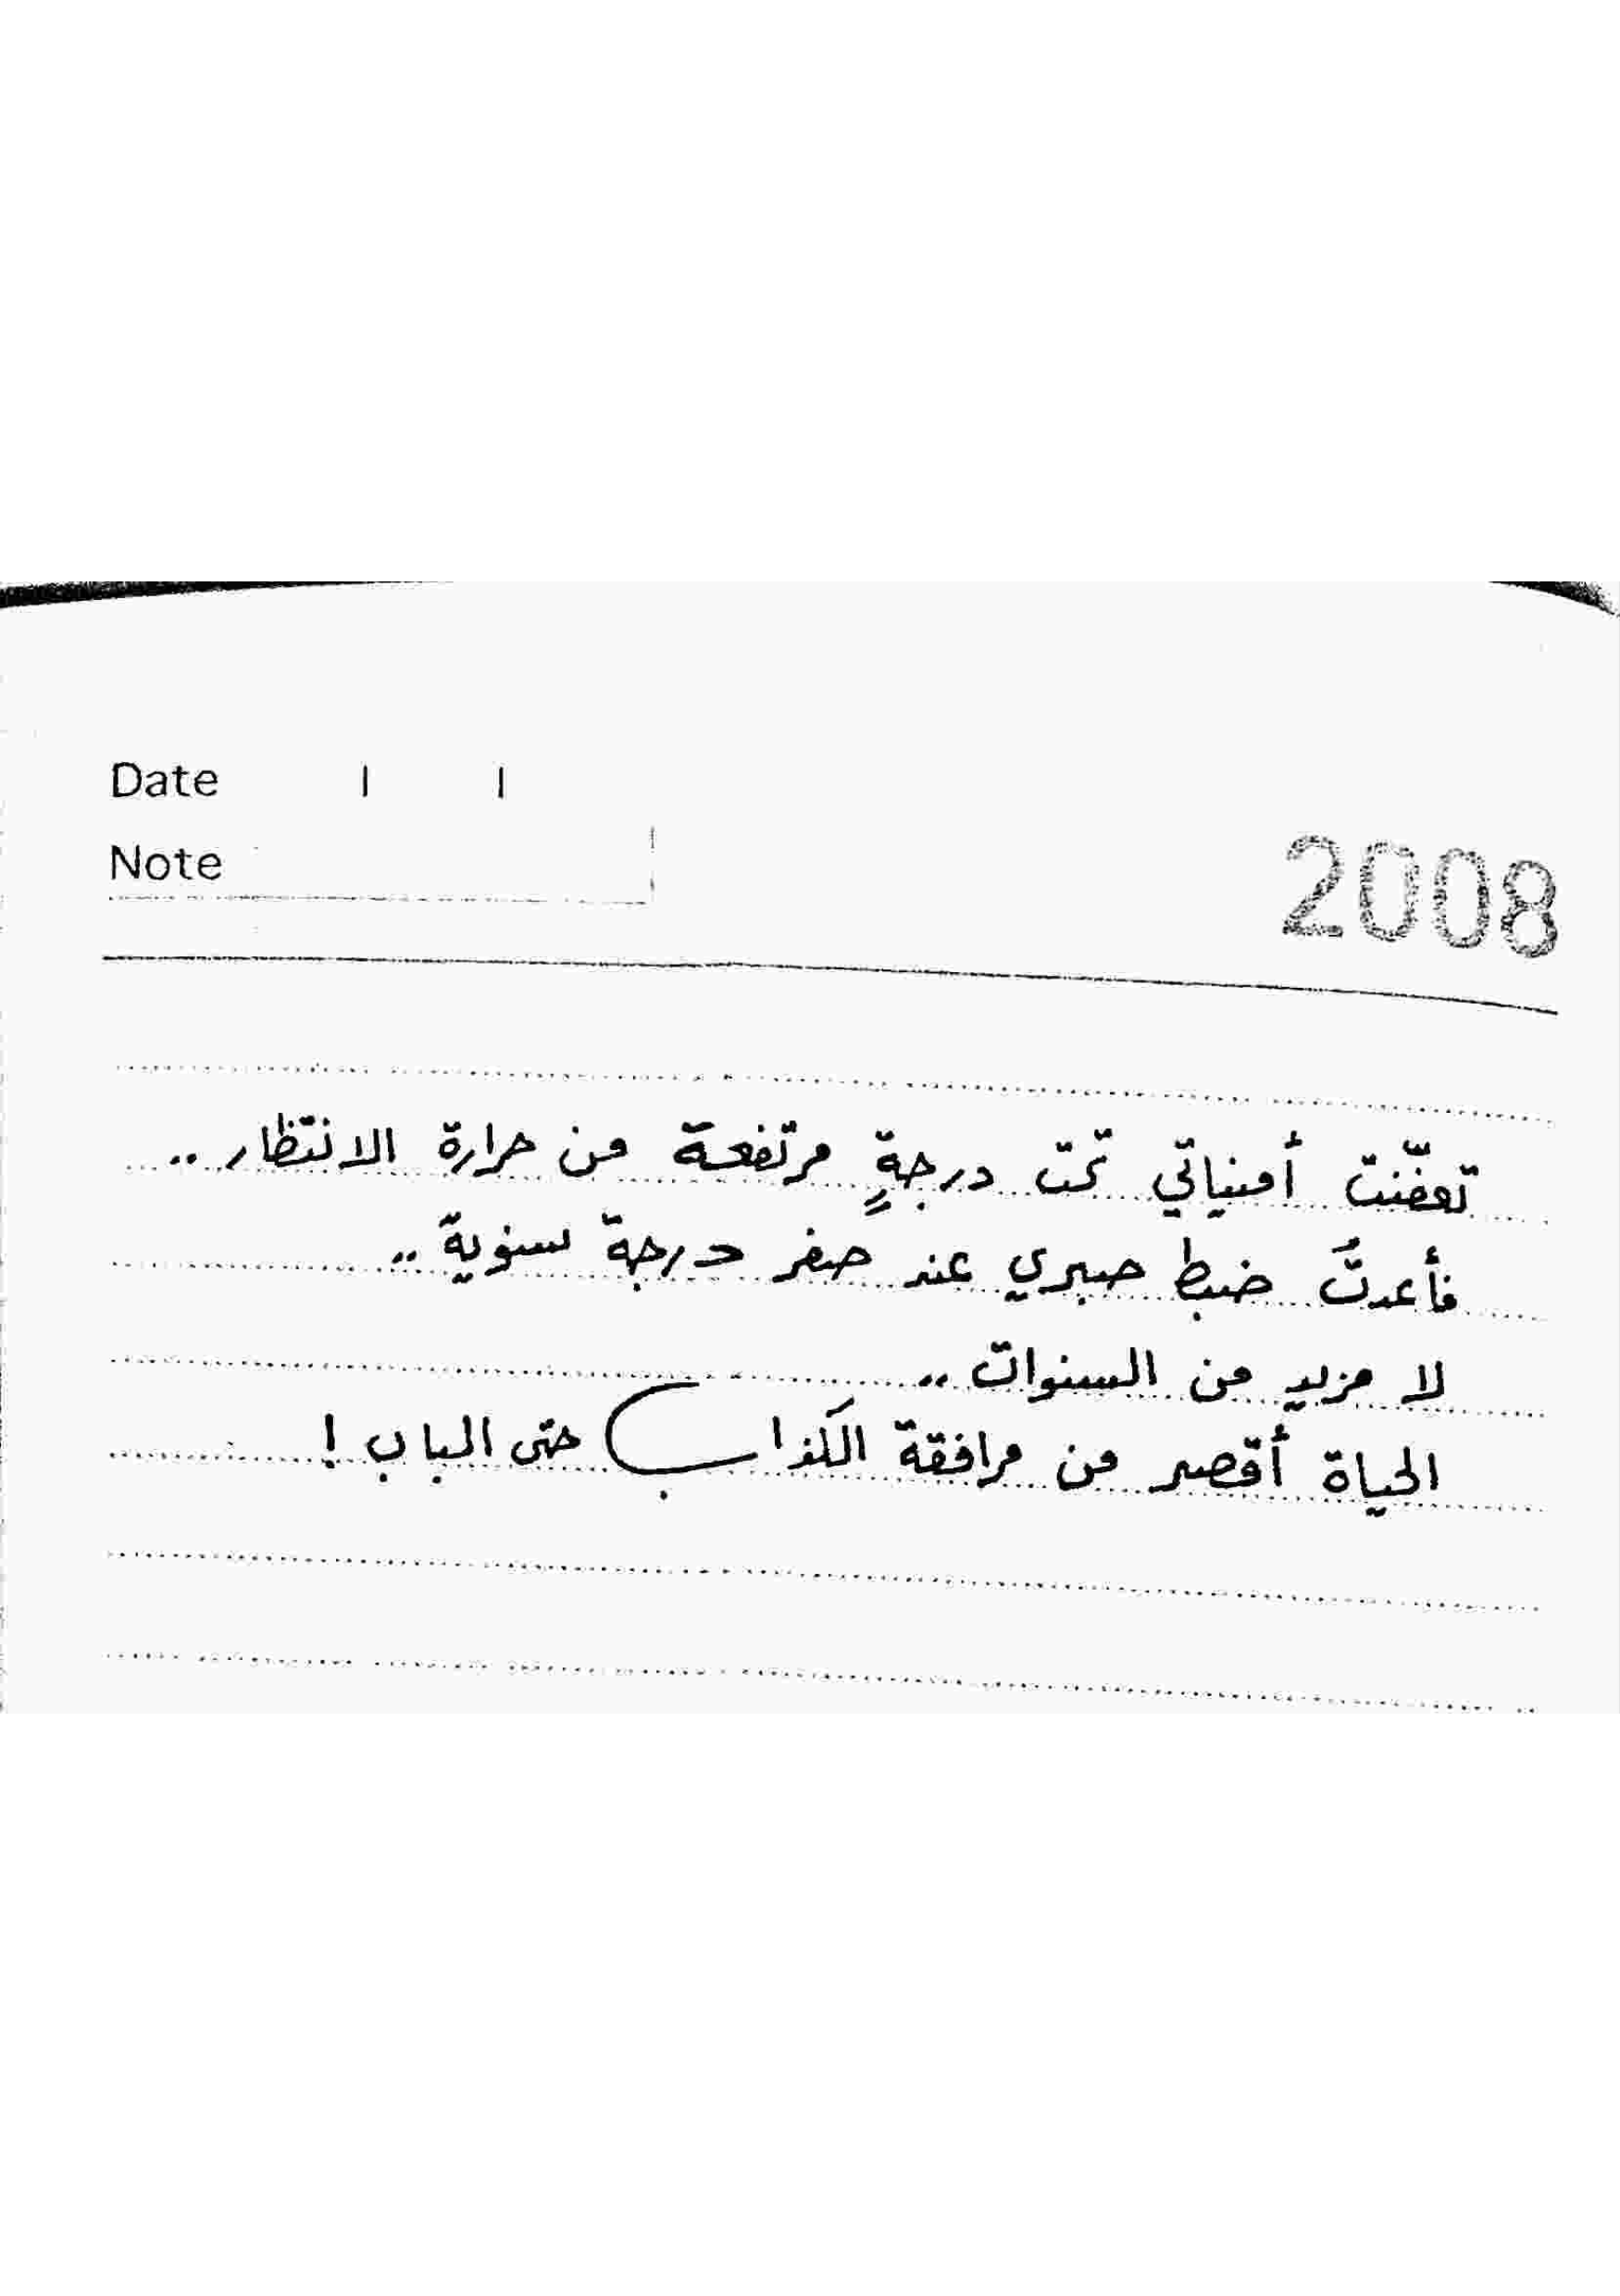 Date / /
Note
2008
تعفّنت أمنياتي تحت درجةٍ مرتفعة من حرارة الانتظار ..
فأعدتُ ضبط صبري عند صفر درجة سنوية ..
لا مزيد من السنوات ..
الحياة أقصر من مرافقة الكذاب حتى الباب !